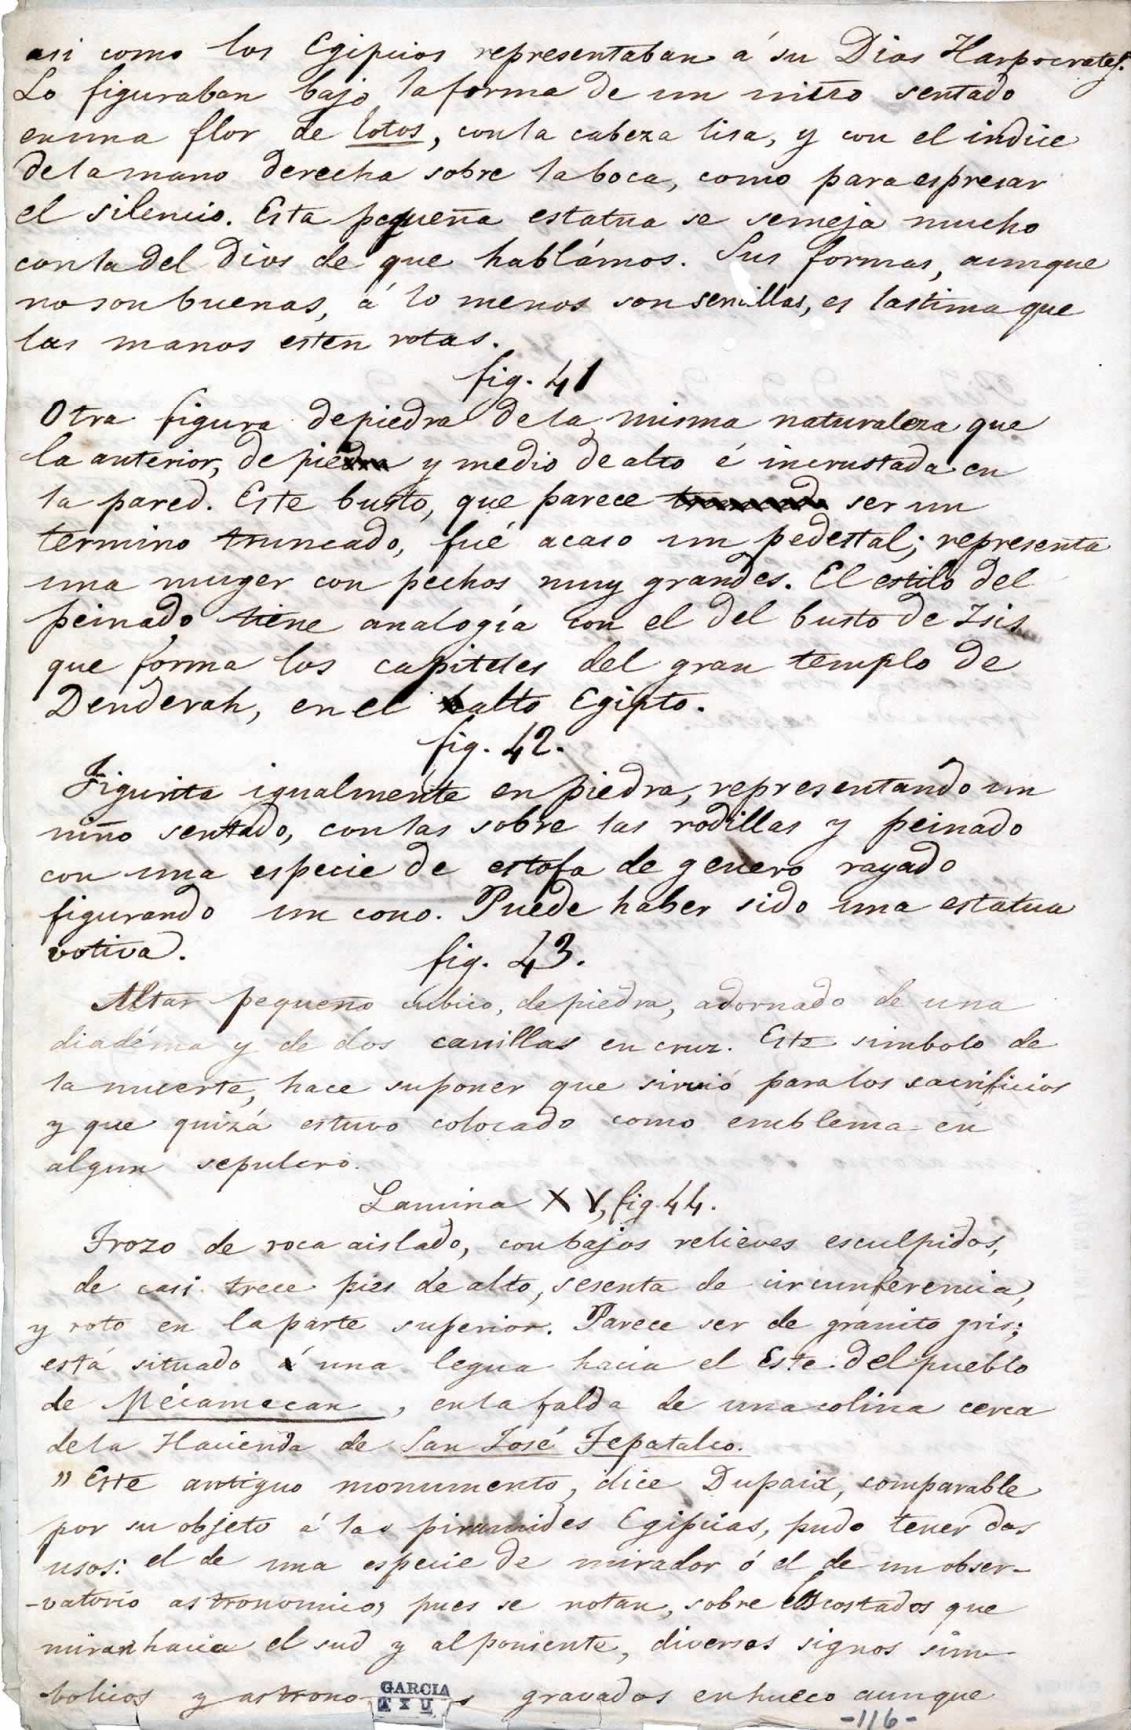 asi como los Egipcios representaban á su Dios Harpocrates.
Lo figuraban bajo la forma de un niño sentado
en una flor de lotos, con la cabeza lisa, y con el indice
de la mano derecha sobre la boca, como para espresar
el silencio. Esta pequeña estatua se semeja mucho
con la del Dios de que hablámos. Sus formas, aunque
no son buenas, á lo menos son sencillas, es lastima que
las manos esten rotas.
fig. 41
Otra figura de piedra de la misma naturaleza que
la anterior, de pie y medio de alto é incrustada en
la pared. Este busto, que parece ser un
termino truncado, fué acaso un pedestal; representa
una muger con pechos muy grandes. El estilo del
peinado tiene analogía con el del busto de Isis
que forma los capiteles del gran templo de
Denderah, en el alto Egipto.
fig. 42.
Figurita igualménte en piedra, representando un
niño sentado, con las sobre las rodillas y peinado
con una especie de estofa de genero rayado
figurando un cono. Puede haber sido una estatua
votiva.
fig. 43.
Altar pequeño cúbico, de piedra, adornado de una
diadéma y de dos canillas en cruz. Este simbolo de
la muerte, hace suponer que sirvió para los sacrificios
y que quizá estuvo colocado como emblema en
algun sepulcro.
Lamina XV, fig. 44.
Trozo de roca aislado, con bajos relieves esculpidos,
de casi trece pies de alto, sesenta de circunferencia,
y roto en la parte superior. Parece ser de granito gris;
está situado á una legua hacia el Este del pueblo
de Mécamecan, en la falda de una colina cerca
de la Hacienda de San José Tepatalco.
"Este antiguo monumento, dice Dupaix, comparable
por su objeto á las piramides Egipcias, pudo tener dos
usos: el de una especie de mirador ó el de un obser-
-vatorio astronomico, pues se notan, sobre los costados que
miran hacia el sud y al poniente, diversos signos sim-
bolicos y astrono s gravados en hueco aunque
GARCIA
TXU
-116-